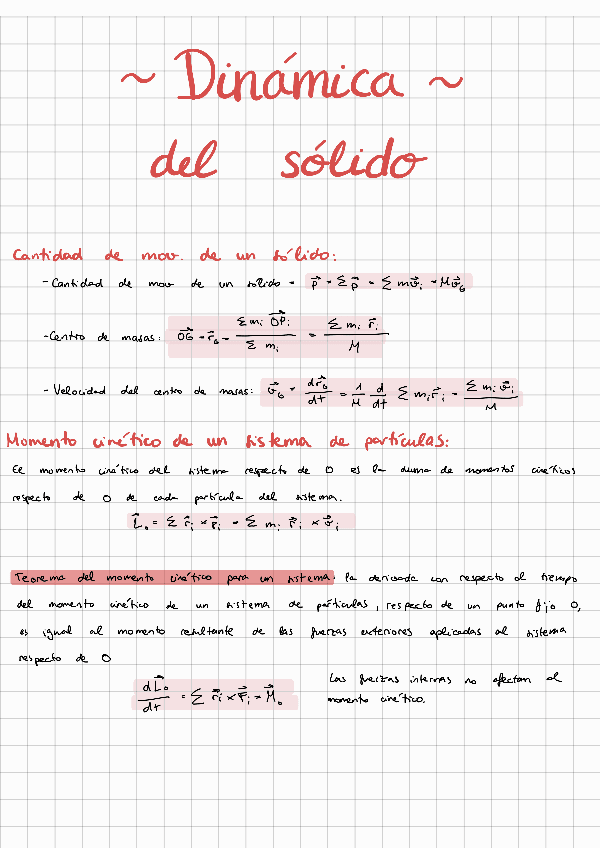 ~ Dinámica ~
del sólido
Cantidad de mov. de un sólido:
- Cantidad de mov de un solido = p⃗ = Σ p⃗ = Σ m v⃗ᵢ = M v⃗_G
- Centro de masas: OG⃗ = r⃗_G = (Σ mᵢ OP⃗ᵢ)/(Σ mᵢ) = (Σ mᵢ r⃗ᵢ)/M
- Velocidad del centro de masas: v⃗_G = dr⃗_G/dt = 1/M d/dt Σ mᵢ r⃗ᵢ = (Σ mᵢ v⃗ᵢ)/M
Momento cinético de un sistema de partículas:
El momento cinético del sistema respecto de O es la duma de momentos cinéticos
respecto de O de cada partícula del sistema.
L⃗₀ = Σ r⃗ᵢ × p⃗ᵢ = Σ mᵢ r⃗ᵢ × v⃗ᵢ
Teorema del momento cinético para un sistema: la derivada con respecto al tiempo
del momento cinético de un sistema de partículas, respecto de un punto fijo O,
es igual al momento resultante de las fuerzas exteriores aplicadas al sistema
respecto de O
dL⃗₀/dt = Σ r⃗ᵢ × F⃗ᵢ = M⃗₀
Las fuerzas internas no afectan al
momento cinético.